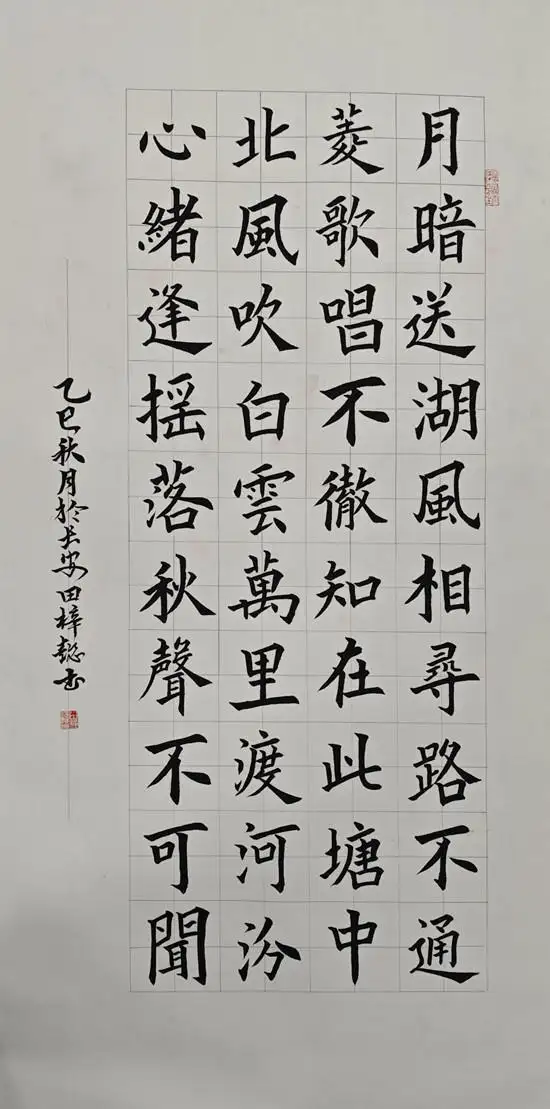 月暗送湖風相尋路不通
菱歌唱不徹知在此塘中
北風吹白雲萬里渡河汾
心緒逢摇落秋聲不可聞
乙巳秋月於长安田梓懿书